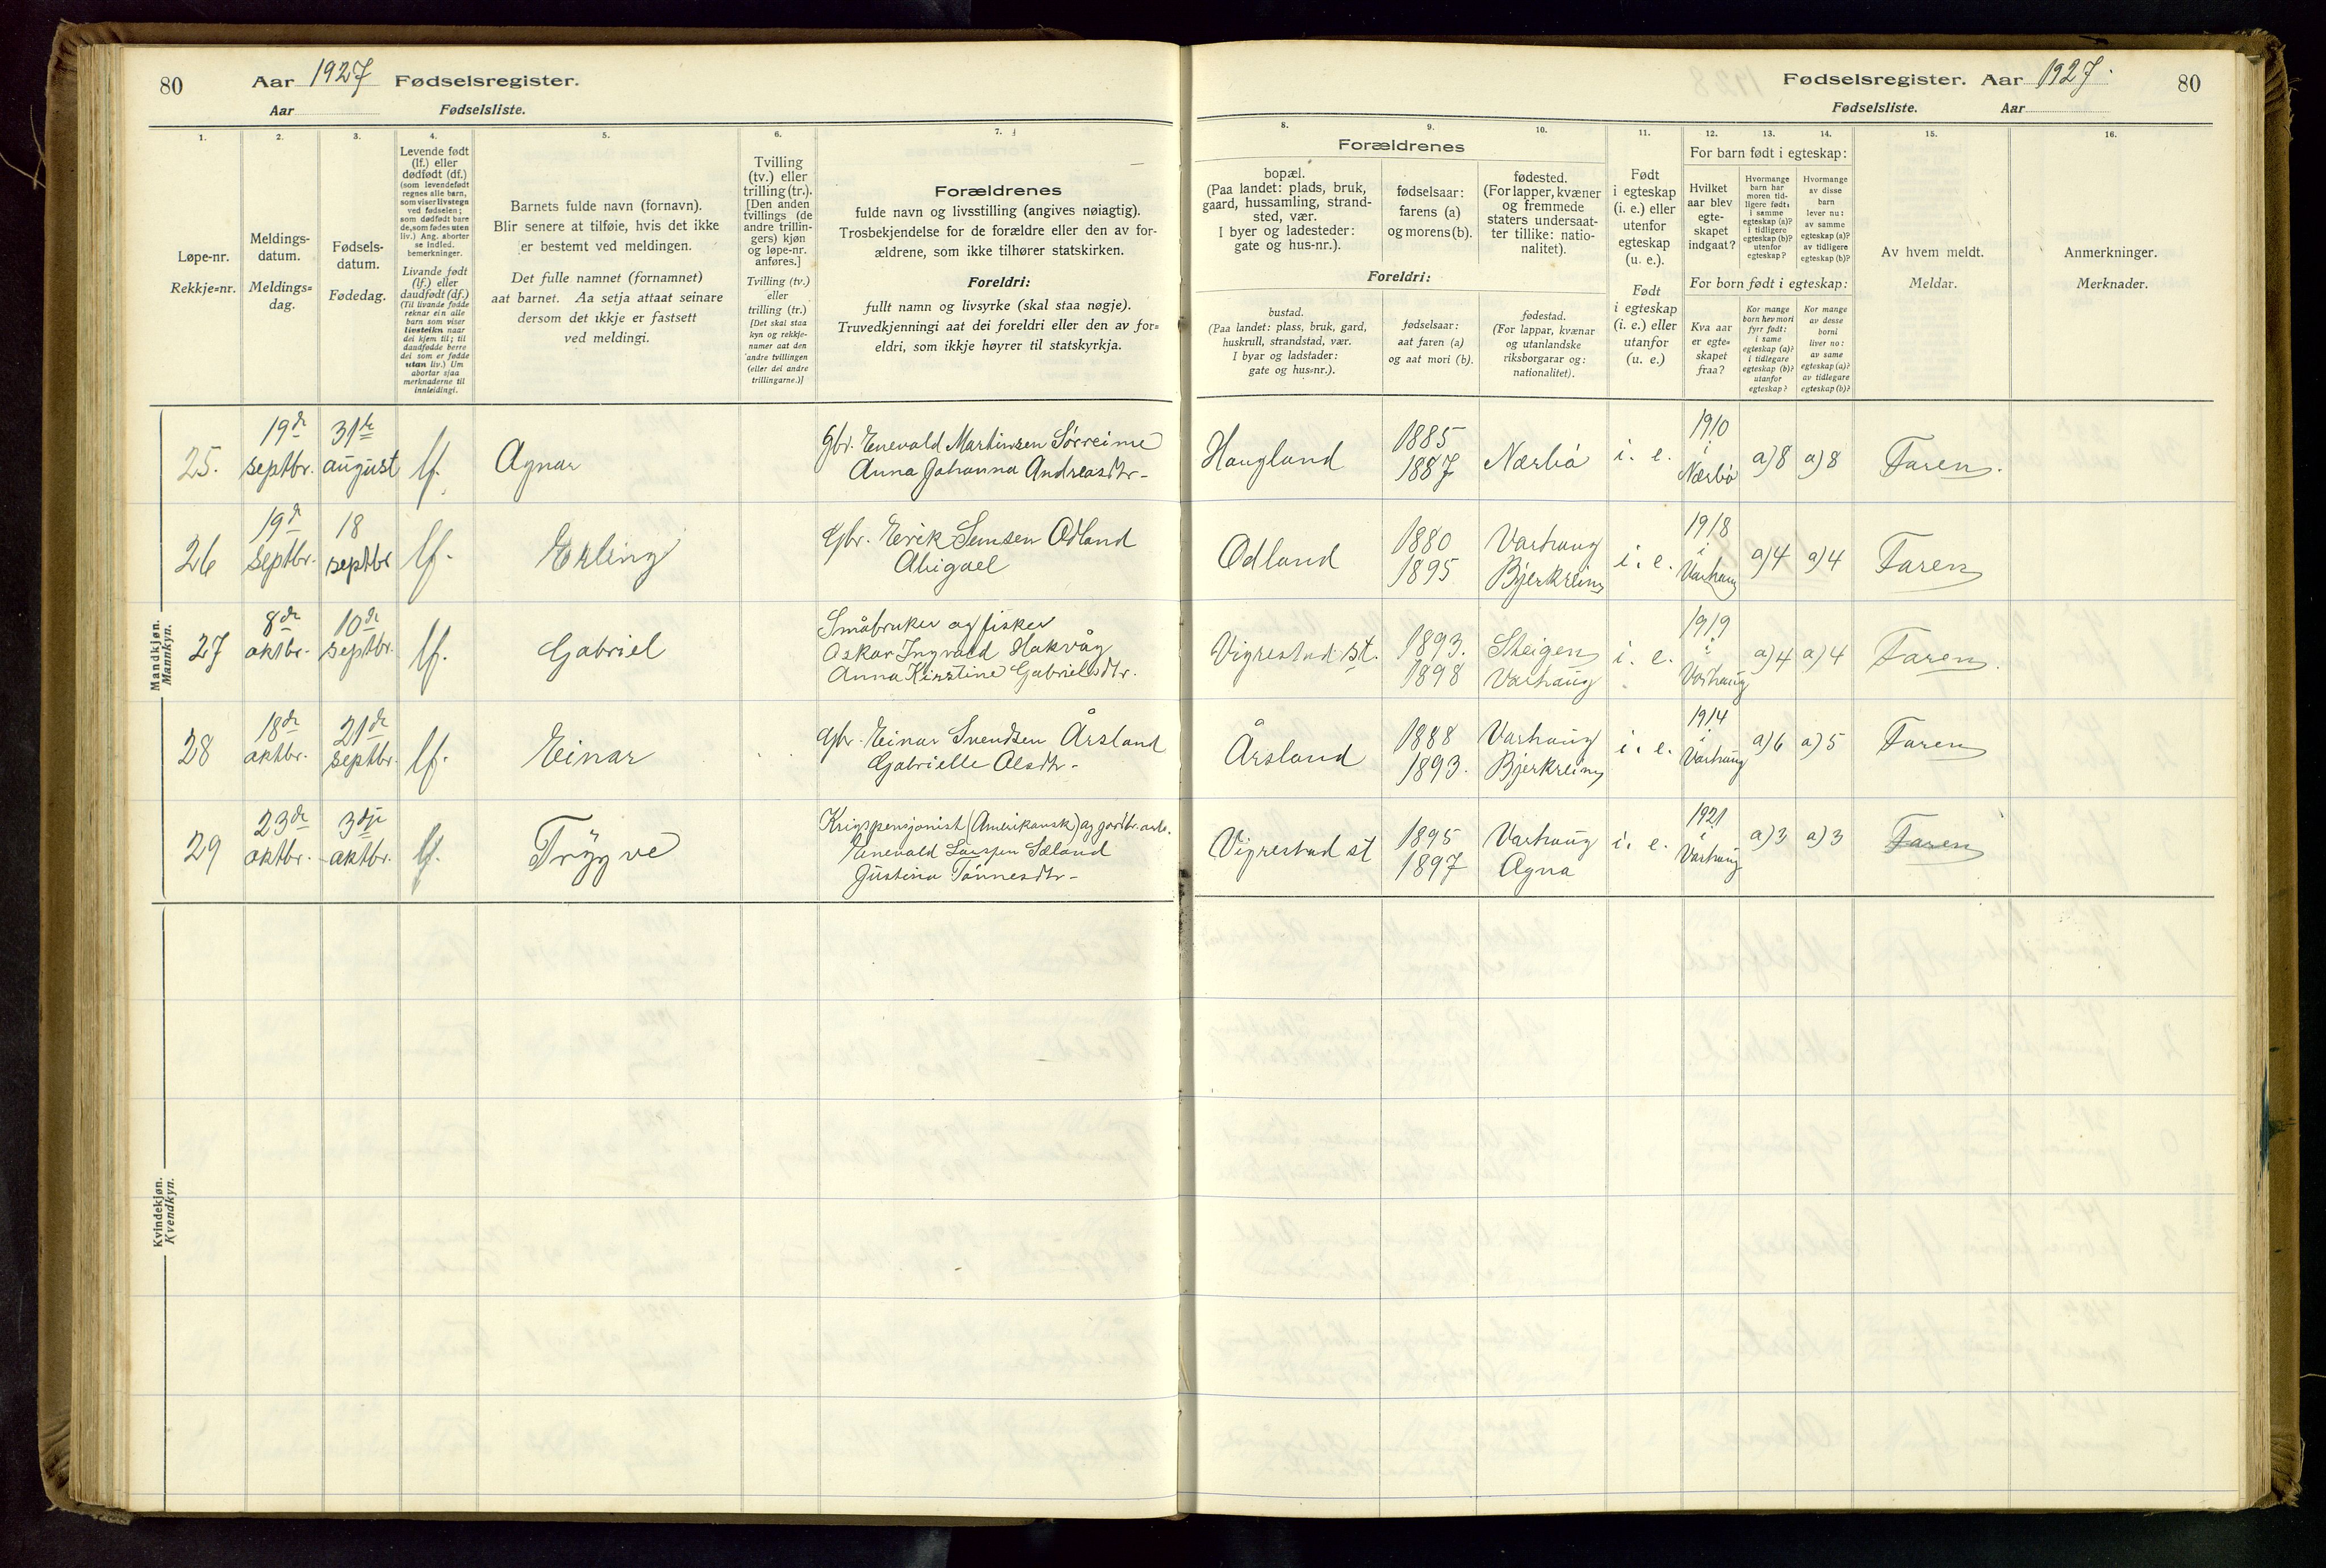 80 Aar 1927 Fødselsregister.
Aar Fødselsliste.
1. 2. 3. 4. 5. 6. 7.
Løpe-nr.
Rekkje=nr.
Meldings-
datum.
Meldings=
dag.
Fødsels-
datum.
Fødedag.
Levende født
(lf.) eller
dødfødt (df.)
(som levendefødt
regnes alle barn,
som viser livstegn
ved fødselen;
som dødfødt bare
de, som fødes uten
liv.) Ang. aborter
se indled.
bemerkninger.
Livande født
(lf.) eller
daudfødt (df.)
(Til livande fødde
reknar ein alle
barn som viser
livsteikn naar
dei kjem til; til
daudfødde berre
dei som er fødde
utan liv.) Um
abortar sjaa
merknaderne til
innleidingi.
Barnets fulde navn (fornavn).
Blir senere at tilføie, hvis det ikke
er bestemt ved meldingen.
Det fulle namnet (fornamnet)
aat barnet. Aa setja attaat seinare
dersom det ikkje er fastsett
ved meldingi.
Tvilling
(tv.) eller
trilling (tr.).
[Den anden
tvillings (de
andre trillin-
gers) kjøn
og løpe-nr.
anføres.]
Tvilling (tv.)
eller
trilling (tr.)
[Det skal staa
kyn og rekkje-
numer aat den
andre tvillingen
(eller dei andre
trillingarne.)]
Forældrenes
fulde navn og livsstilling (angives nøiagtig).
Trosbekjendelse for de forældre eller den av for-
ældrene, som ikke tilhører statskirken.
Foreldri:
fullt namn og livsyrke (skal staa nøgje).
Truvedkjenningi aat dei foreldri eller den av for=
eldri, som ikkje høyrer til statskyrkja.
Mandkjøn.
Mannkyn.
25. 19de septbr. 31te august lf. Agnar
Gbr. Enevald Martinsen Sørreime
Anna Johanna Andreasdtr-
26 19d septbr. 18 septbr lf. Erling
Gbr. Eirik Semsen Odland
Abigael
27 8de oktbr. 10de septbr. lf. Gabriel
Småbruker og fisker
Oskar Ingvald Hakvåg
Anna Kirstine Gabrielsdtr.
28 18de oktbr. 21de septbr. lf. Einar
Gbr. Einar Svendsen Årsland
Gabrielle Olsdtr-
29 23de oktbr. 3dje oktbr. lf. Trygve
Krigspensjonist (Amerikansk) og gardbr. arb.
Enevald Larssen Sæland
Gustina Tønnesdtr-
Kvindekjøn.
Kvendkyn.
Fødselsregister. Aar 1927. 80
Fødselsliste. Aar
8. 9. 10. 11. 12. 13. 14. 15. 16.
Forældrenes
bopæl.
(Paa landet: plads, bruk,
gaard, hussamling, strand-
sted, vær.
I byer og ladesteder:
gate og hus-nr.).
fødselsaar:
farens (a)
og morens (b).
fødested.
(For lapper, kvæner
og fremmede
staters undersaat-
ter tillike: natio-
nalitet).
Foreldri:
bustad.
(Paa landet: plass, bruk, gard,
huskrull, strandstad, vær.
I byar og ladstader:
gate og hus=nr.).
fødselsaar:
aat faren (a)
og aat mori (b).
fødestad.
(For lappar, kvænar
og utanlandske
riksborgarar og:
nationalitet).
Født
i egteskap
(i. e.) eller
utenfor
egteskap
(u. e.).
Født
i egteskap
(i. e.) eller
utanfor
(u. e.)
For barn født i egteskap:
Hvilket
aar blev
egte-
skapet
indgaat?
Hvormange
barn har
moren tid-
ligere født:
i samme
egteskap (a)?
i tidligere
egteskap (b)?
utenfor
egteskap?
Hvormange
av disse
barn
lever nu:
av samme
egteskap (a)?
av tidligere
egteskap (b)?
For born født i egteskap:
Kva aar
er egte=
skapet
fraa?
Kor mange
born hev mori
fyrr født:
i same
egteskap (a)?
i tidlegare
egteskap (b)?
utanfor
egteskap?
Kor mange
av desse
borni
liver no:
av same
egteskap (a)?
av tidlegare
egteskap (b)?
Av hvem meldt.
Meldar.
Anmerkninger.
Merknader.
Haugland 1885 1887 Nærbø i. e. 1910 i Nærbø a) 8 a) 8 Faren.
Odland 1880 1895 Varhaug Bjerkreim i. e. 1918 i Varhaug a) 4 a) 4 Faren
Vigrestad st. 1893. 1898 Steigen Varhaug i. e. 1919 i Varhaug a) 4 a) 4 Faren.
Årsland 1888 1893. Varhaug Bjerkreim i. e. 1914 i Varhaug a) 6 a) 5 Faren
Vigrestad st 1895 1897 Varhaug Ogna i. e. 1921 i Varhaug a) 3 a) 3 Faren